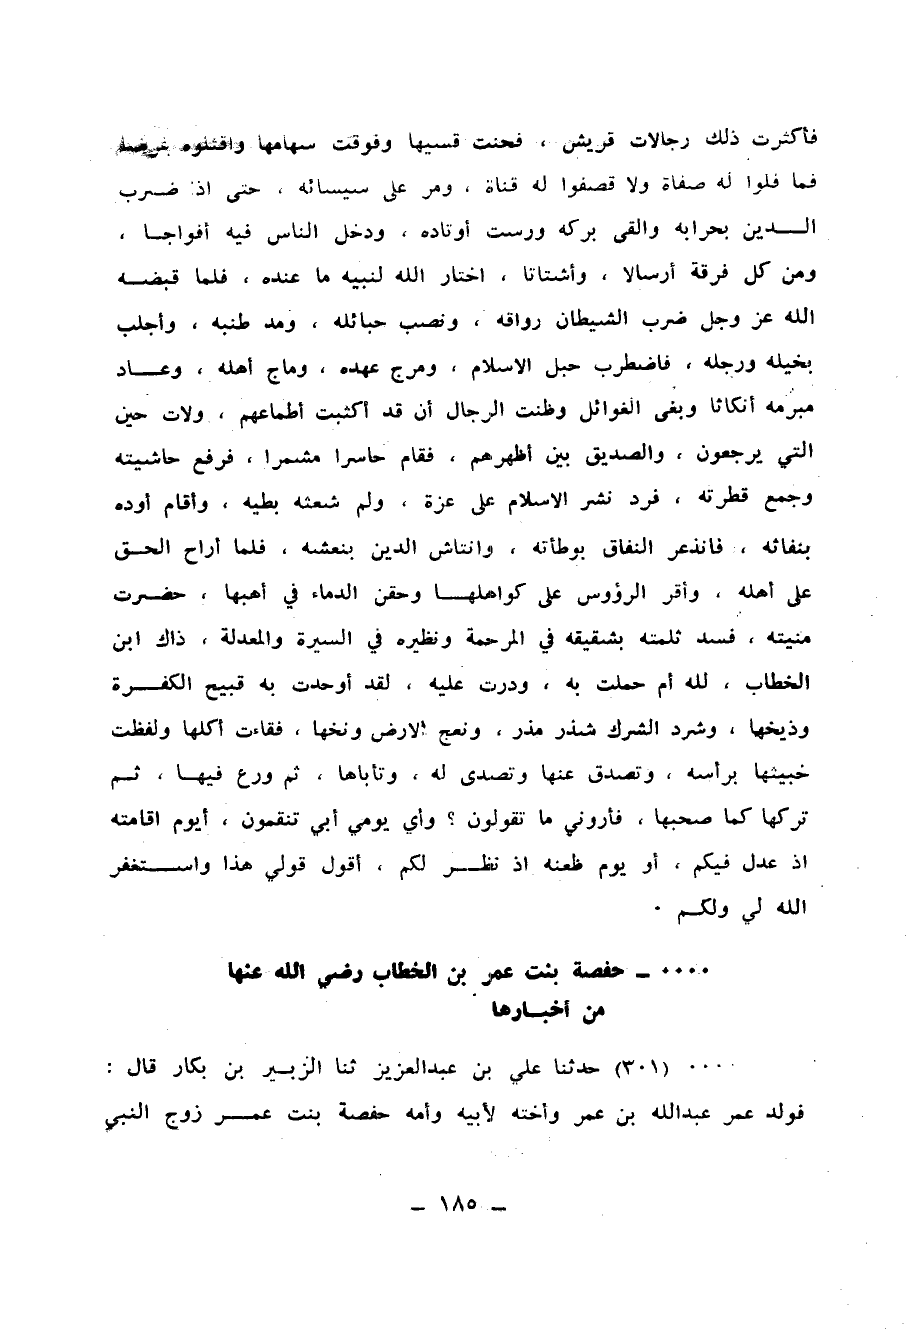 فأكثرت ذلك رجالات قريش ، فحنت قسيها وفوقت سهامها
فما فلوا له صفاة ولا قصفوا له قناة ، ومر على سيسائه ، حتى اذ ضرب
الدين بجرابه والقى بركه ورست أوتاده ، ودخل الناس فيه أفواجا ،
ومن كل فرقة أرسالا ، وأشتاتا ، اختار الله لنبيه ما عنده ، فلما قبضه
الله عز وجل ضرب الشيطان رواقه ، ونصب حبائله ، ومد طنبه ، وأجلب
بخيله ورجله ، فاضطرب حبل الاسلام ، ومرج عهده ، وماج أهله ، وعاد
مبرمه أنكاثا وبغى الغوائل وظنت الرجال أن قد أكثبت أطماعهم ، ولات حين
التي يرجعون ، والصديق بين أظهرهم ، فقام حاسرا مشمرا ، فرفع حاشيته
وجمع قطرته ، فرد نشر الاسلام على عزة ، ولم شعثه بطيه ، وأقام أوده
بنفاثه ، فانذعر النفاق بوطأته ، وانتاش الدين بنعشه ، فلما أراح الحق
على أهله ، وأقر الرؤوس على كواهلها وحقن الدماء في أهبها ، حضرت
منيته ، فسد ثلمته بشقيقه في المرحمة ونظيره في السيرة والمعدلة ، ذاك ابن
الخطاب ، لله أم حملت به ، ودرت عليه ، لقد أوحدت به قبيح الكفرة
وذيخها ، وشرد الشرك شذر مذر ، ونعج الارض ونخها ، فقاءت أكلها ولفظت
خبيثها برأسه ، وتصدق عنها وتصدى له ، وتأباها ، ثم ورع فيها ، ثم
تركها كما صحبها ، فأروني ما تقولون ؟ وأي يومي أبي تنقمون ، أيوم اقامته
اذ عدل فيكم ، أو يوم ظعنه اذ نظر لكم ، أقول قولي هذا واستغفر
الله لي ولكم ٠
٠٠٠٠ ــ حفصة بنت عمر بن الخطاب رضي الله عنها
من أخبارها
٠٠٠٠ (٣٠١) حدثنا علي بن عبدالعزيز ثنا الزبير بن بكار قال :
فولد عمر عبدالله بن عمر وأخته لأبيه وأمه حفصة بنت عمر زوج النبي
ــ ١٨٥ ــ